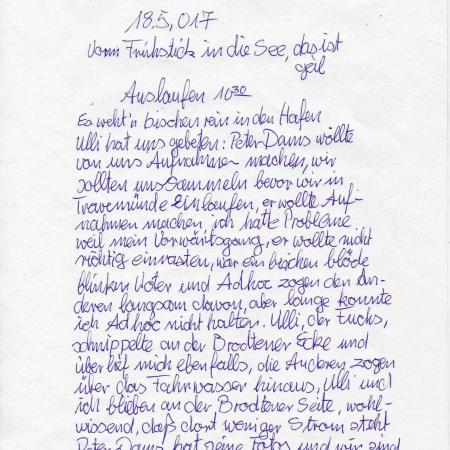 18.5,017
Vorm Frühstück in die See, das ist
geil
Auslaufen 10 30
Es weht'n bischen rein in den Hafen
Ulli hat uns gebeten: Peter Dams wollte
von uns Aufnahmen machen, wir
sollten uns sammeln bevor wir in
Travemünde einlaufen, er wollte Auf-
nahmen machen, ich hatte Probleme
weil mein Vorwärtsgang, er wollte nicht
richtig einrasten, war ein bischen blöde
blinken Voter und Adhoc zogen den An-
deren langsam davon, aber lange konnte
ich Ad hoc nicht halten. Ulli, der Fuchs,
schnippelte an der Brodtener Ecke und
überlief mich ebenfalls, die Anderen zogen
über das Fahrwasser hinaus, Ulli und
ich blieben an der Brodtener Seite, wohl-
wissend, daß dort weniger Strom steht
Peter Dams hat seine Fotos und wir sind